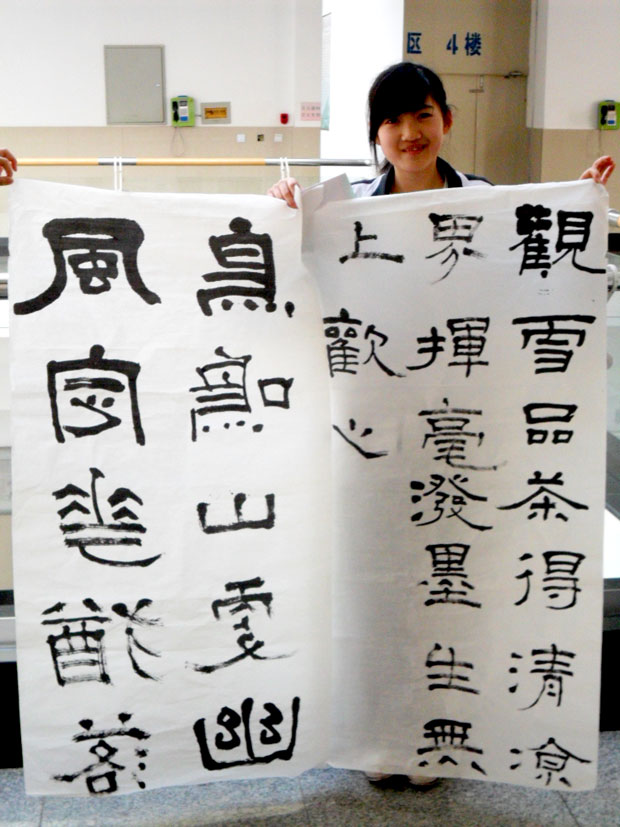 区 4楼
觀雪品茶得清涼
界揮毫潑墨生無
上歡心
鳥鳴山更幽
風定花猶落